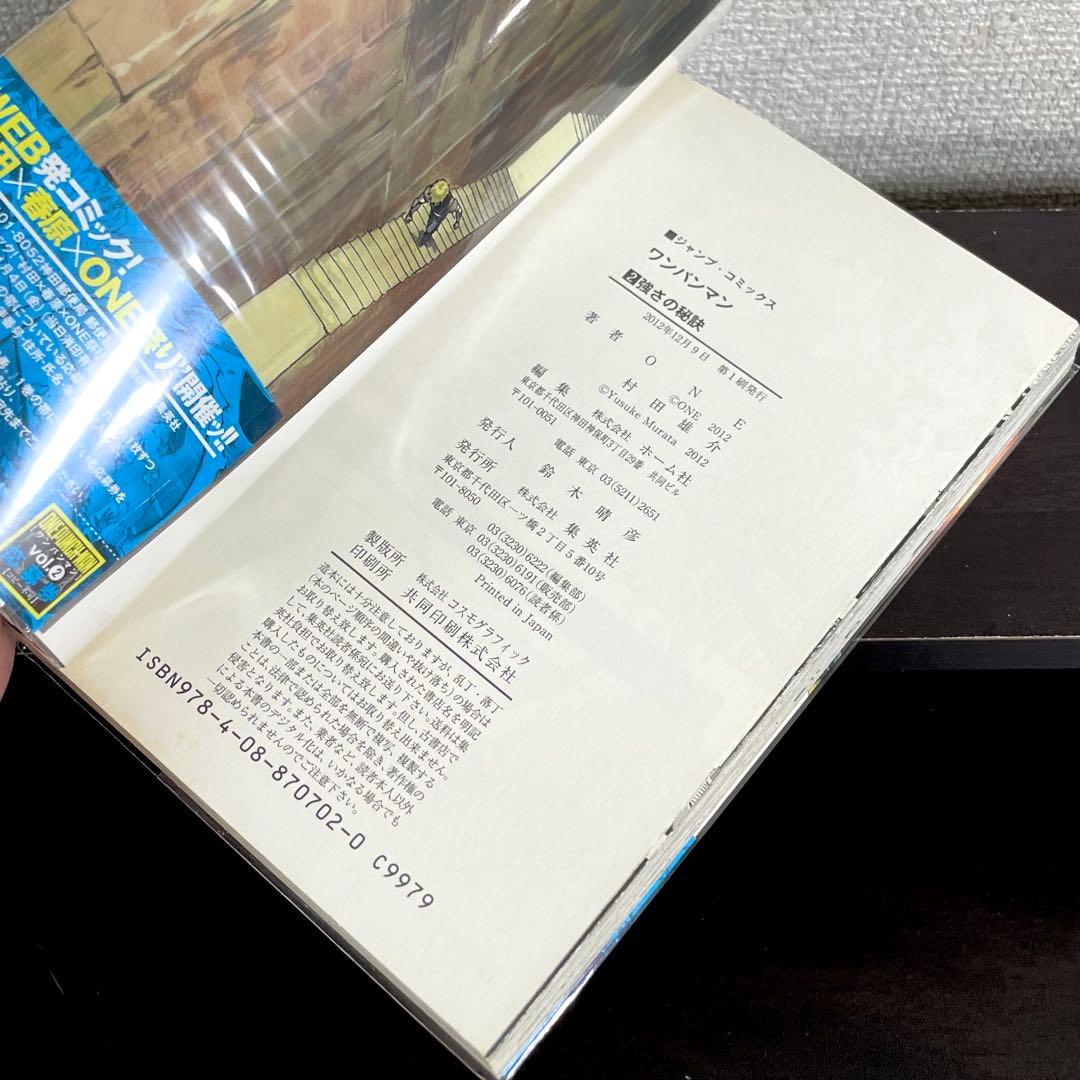 WEB発コミック!
田×春原×ONE祭り開催ッ!!
vol.2
応募券
【コピー不可】
■ジャンプ・コミックス
ワンパンマン
2強さの秘訣
2012年12月9日 第1刷発行
著者 ONE
©ONE 2012
村田雄介
©Yusuke Murata 2012
編集 株式会社 ホーム社
東京都千代田区神田神保町3丁目29番 共同ビル
〒101-0051
電話 東京 03(5211)2651
発行人 鈴木晴彦
発行所 株式会社 集英社
東京都千代田区一ツ橋2丁目5番10号
〒101-8050
03(3230)6222(編集部)
電話 東京 03(3230)6191(販売部)
03(3230)6076(読者係)
Printed in Japan
製版所 株式会社 コスモグラフィック
印刷所 共同印刷株式会社
造本には十分注意しておりますが、乱丁・落丁
(本のページ順序の間違いや抜け落ち)の場合は
お取り替え致します。購入された書店名を明記
して、集英社読者係宛にお送り下さい。送料は集
英社負担でお取り替え致します。但し、古書店で
購入したものについてはお取り替え出来ません。
本書の一部または全部を無断で複写、複製する
ことは、法律で認められた場合を除き、著作権の
侵害となります。また、業者など、読者本人以外
による本書のデジタル化は、いかなる場合でも
一切認められませんのでご注意下さい。
ISBN978-4-08-870702-0 C9979